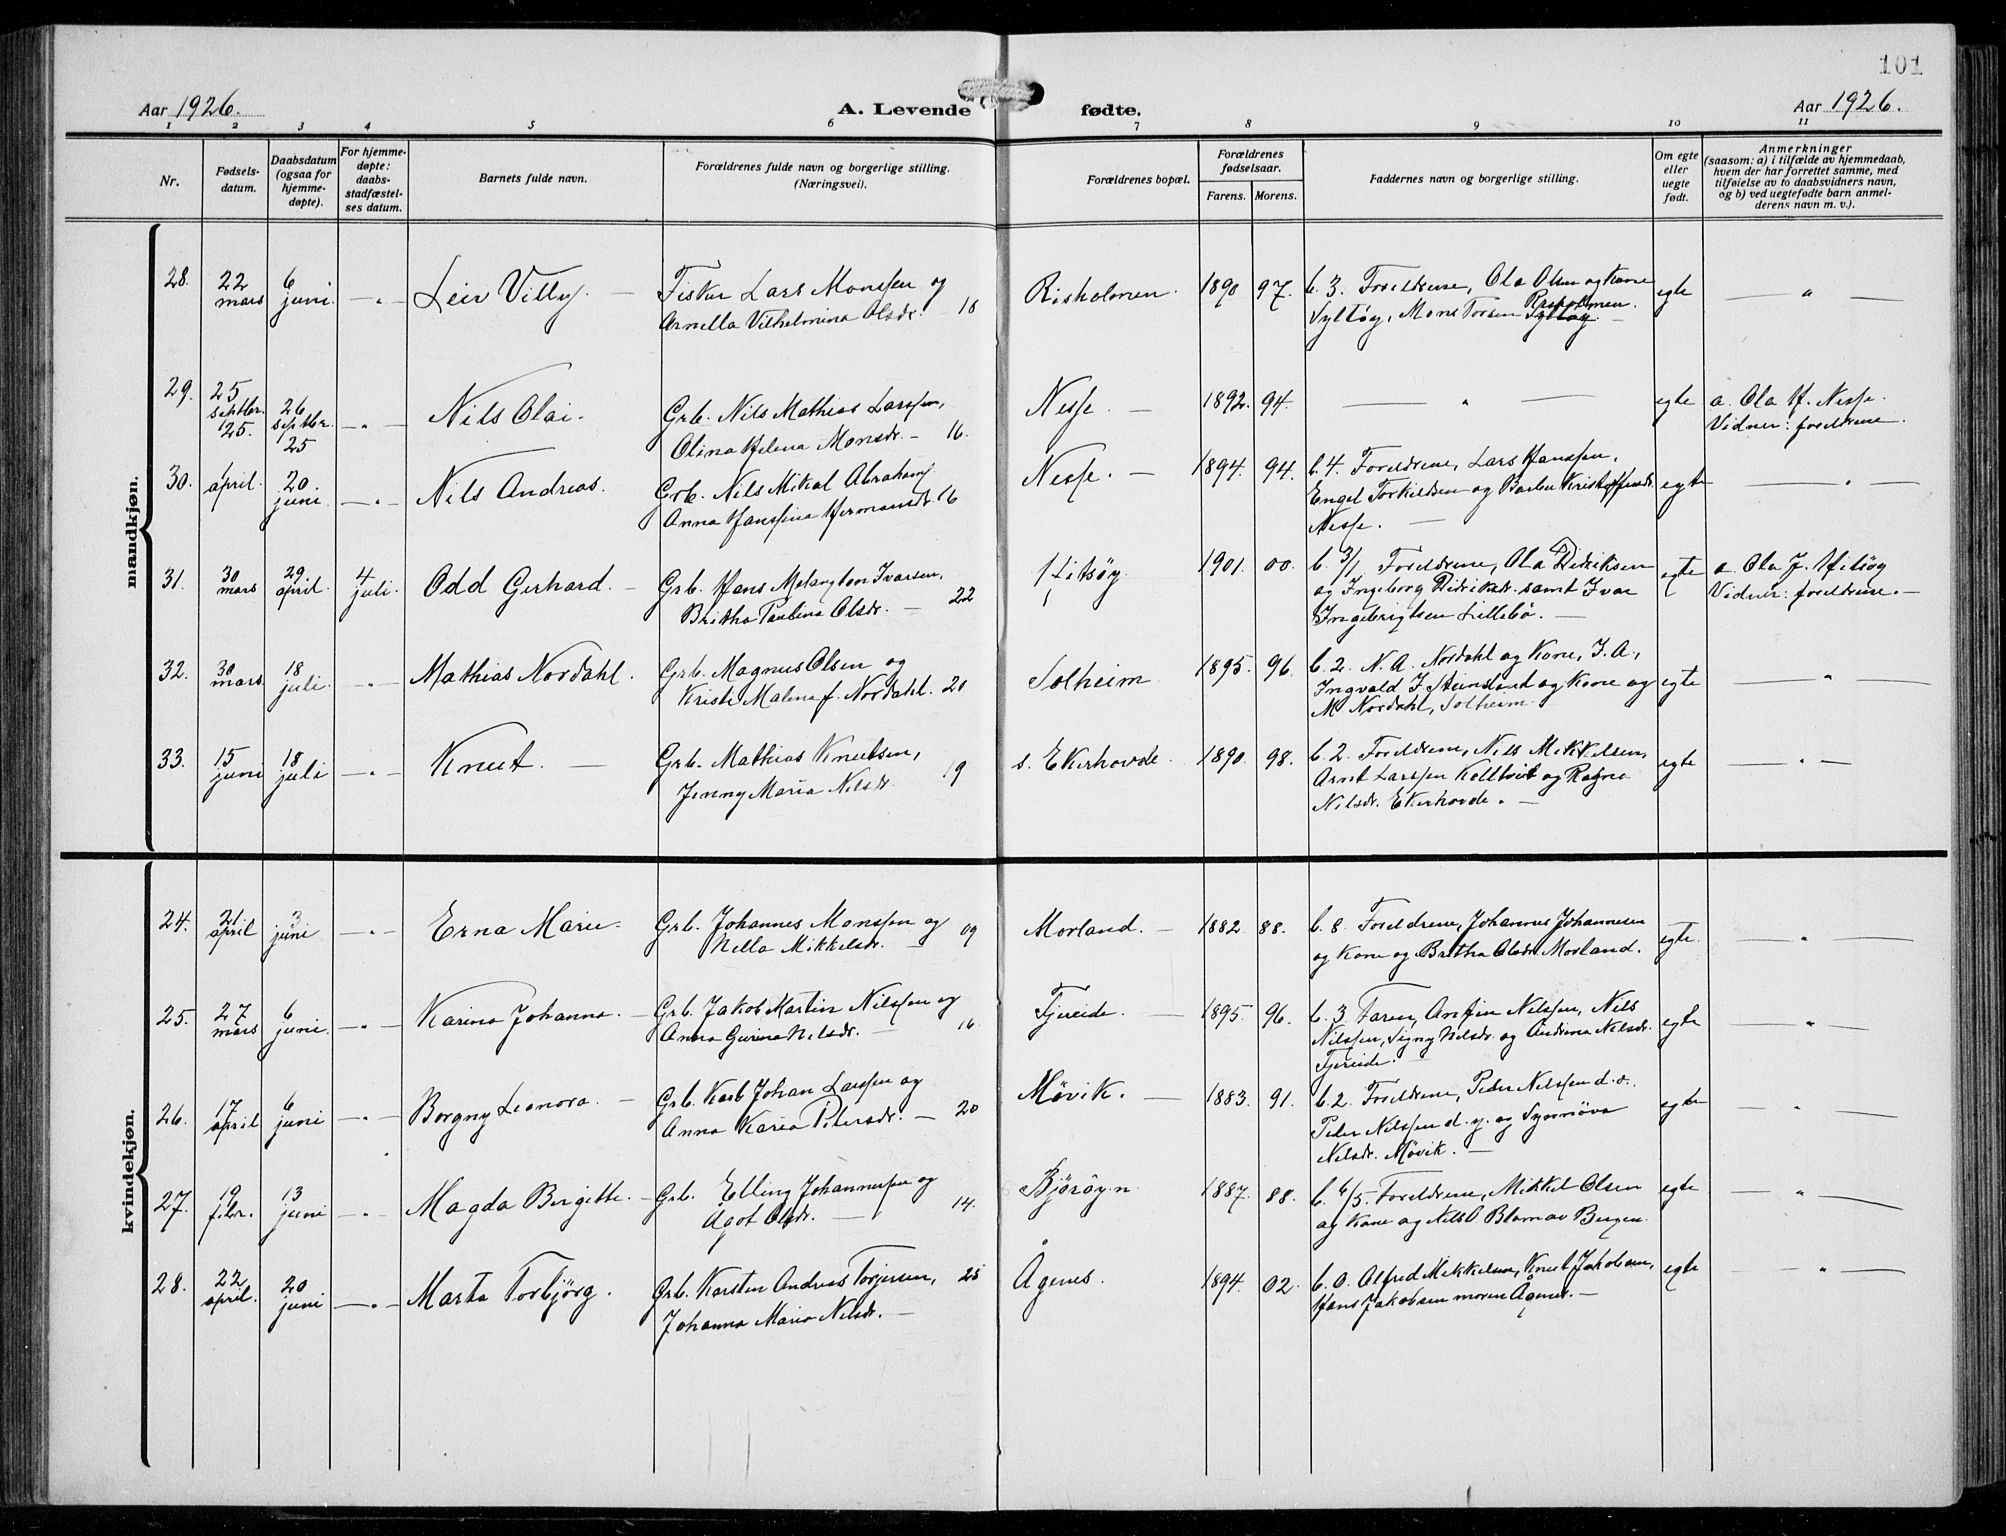 101
Aar 1926.
A. Levende fødte.
Aar 1926.
1 2 3 4 5 6 7 8 9 10 11
Nr.
Fødsels-
datum.
Daabsdatum
(ogsaa for
hjemme-
døpte).
For hjemme-
døpte:
daabs-
stadfæstel-
ses datum.
Barnets fulde navn.
Forældrenes fulde navn og borgerlige stilling.
(Næringsvei).
Forældrenes bopæl.
Forældrenes
fødselsaar.
Farens. Morens.
Faddernes navn og borgerlige stilling.
Om egte
eller
uegte
født.
Anmerkninger
(saasom: a) i tilfælde av hjemmedaab,
hvem der har forrettet samme, med
tilføielse av to daabsvidners navn,
og b) ved uegtefødte barn anmel-
derens navn m. v.).
mandkjøn.
28. 22 mars 6 juni. — " — Leiv Villy. — Fisker Lars Monssen og
Arnella Vilhelmina Olsdr. — 18
Risholmen. 1890 97. b. 3. Foreldrene, Ola Olsen og Kone
Syltøy, Mons Torsen Risholmen.
egte — " —
29. 25 septbr. 25. 26 septbr. 25 — " — Nils Olai. Grb. Nils Mathias Larssen,
Olina Helena Monsdr. — 16.
Nesse. — 1892. 94. — " — egte a. Ola H. Nesse.
Vidner: foreldrene.
30. april. 20. juni. — " — Nils Andreas. Grb. Nils Mikal Abrahams.
Anna Hanssina Hermansdr. 16
Nesse. — 1894. 94. b. 4. Foreldrene, Lars Hanssen,
Engel Torkildsen og Barbru Kristoffersdr.
Nesse. —
egte — " —
31. 30 mars 29 april. 4 juli. Odd Gerhard. — Grb. Hans Melangton Ivarsen,
Britha Paulina Olsdr. — 22
Litsøy. 1901. 00. b. 3/1 Foreldrene, Ola Didriksen
og Ingeborg Didriksdr. samt Ivar
Ingebrigtsen Lillebø. —
egte a. Ola J. Hilsøy
Vidner: foreldrene. —
32. 30 mars. 18 juli. — " — Mathias Nordahl. Grb. Magnus Olsen og
Kristi Malena f. Nordahl. 20
Solheim. 1895. 96. b. 2. N. A. Nordahl og Kone, J. A.,
Ingvald J. Steinsland og Kone og
M. Nordahl, Solheim.
egte — " —
33. 15 juni 18 juli — " — Knut. — Grb. Mathias Knutsen,
Jenny Maria Nilsdr. 19
s. Ekerhovde. 1890. 98. b. 2. Foreldrene, Nils Mikkelsen,
Arnt Larssen Kolltveit og Ragna
Nilsdr. Ekerhovde. —
egte — " —
kvindekjøn.
24. 21 april 3 juni — " — Erna Marie. Grb. Johannes Monssen og
Nella Mikkelsdr. — 09
Morland. — 1882. 88. b. 8. Foreldrene, Johannes Johannesen
og Kone og Britha Olsdr. Morland.
egte. — " —
25. 27 mars 6 juni. — " — Karina Johanna. — Grb. Jakob Martin Nilssen og
Anna Gurina Nilsdr. — 16.
Fjereide. — 1895. 96. b. 3 Faren, Anfin Nilssen, Nils
Nilssen, Signy Nilsdr. og Andrina Nilsdr.
Fjereide. —
egte — " —
26. 17 april 6 juni — " — Borgny Leonora. — Grb. Karl Johan Larssen og
Anna Karia Pedersdr. — 20
Møvik. — 1883. 91. b. 2. Foreldrene, Peder Nilssen d. e.
Peder Nilssen d. y. og Synnøva
Nilsdr. Møvik. —
egte — " —
27. 19 febr. 13 juni — " — Magda Birgitte. — Grb. Elling Johannessen og
Ågot Olsdr. — 14.
Bjørøyn. 1887. 88. b. 6/5. Foreldrene, Mikkel Olsen
og Kone og Nils O. Blom av Bergen.
egte — " —
28. 22 april. 20 juni — " — Marta Torbjørg. Grb. Karsten Andreas Torjersen, 25
Johanna Maria Nilsdr. —
Ågenes. 1894. 02. b. 0. Alfred Mikkelsen, Knut Jakobsen,
Hans Jakobsen moren Ågenes. —
egte — " —